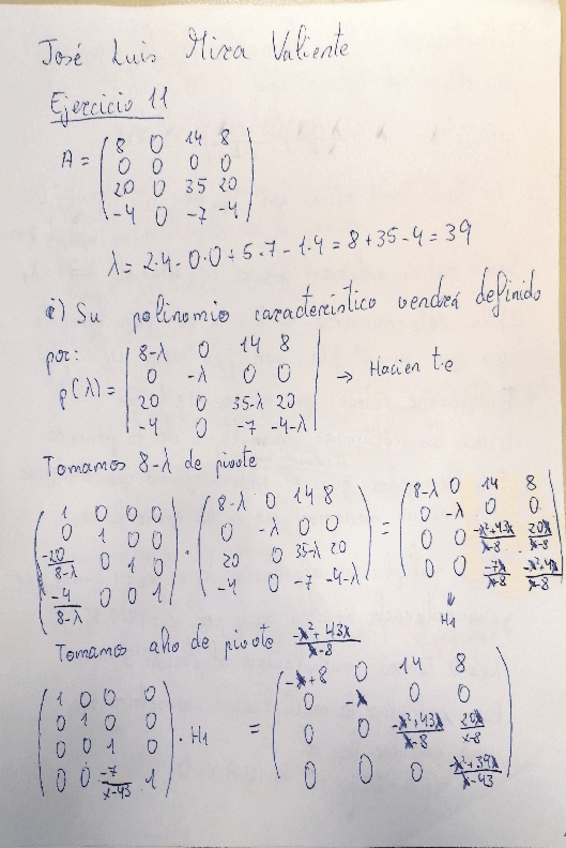 José Luis Mira Valiente
Ejercicio 11
A = (8 0 14 8
0 0 0 0
20 0 35 20
-4 0 -7 -4)
λ = 2·4 - 0·0 + 5·7 - 1·4 = 8 + 35 - 4 = 39
i) Su polinomio característico vendrá definido
por:
p(λ) = |8-λ 0 14 8
0 -λ 0 0
20 0 35-λ 20
-4 0 -7 -4-λ| →
Tomamos 8-λ de pivote
(1 0 0 0
0 1 0 0
-20/8-λ 0 1 0
-4/8-λ 0 0 1) · (8-λ 0 14 8
0 -λ 0 0
20 0 35-λ 20
-4 0 -7 -4-λ) = (8-λ 0 14 8
0 -λ 0 0
0 0 -x²+43x/x-8 20x/x-8
0 0 -7x/x-8 -x²+4x/x-8)
H1
Tomamos aho de pivote -x²+43x/x-8
(1 0 0 0
0 1 0 0
0 0 1 0
0 0 -7/x-43 1) · H1 = (-x+8 0 14 8
0 -x 0 0
0 0 -x²+43x/x-8 20x/x-8
0 0 0 -x²+39x/x-43)